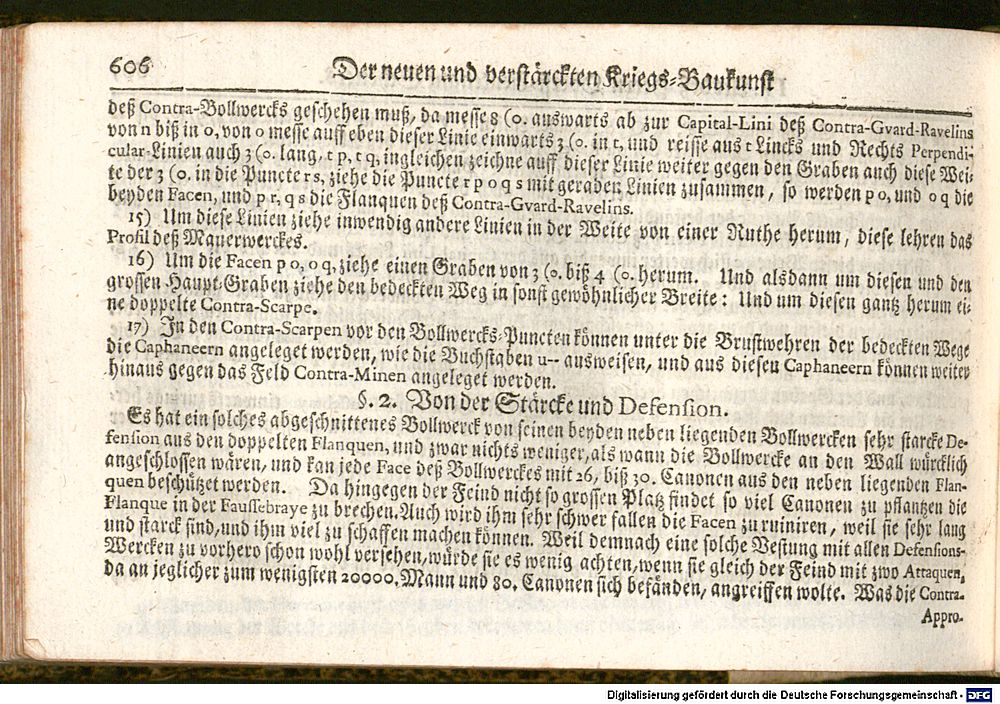 606 Der neuen und verstärckten Kriegs-Baukunst
deß Contra-Bollwercks geschehen muß, da messe 8 (0. auswarts ab zur Capital-Lini deß Contra-Gvard-Ravelins
von n biß in o, von o messe auff eben dieser Linie einwärts 3 (0. in t, und reisse aus t Lincks und Rechts Perpendi-
cular-Linien auch 3 (0. lang, t p, t q, ingleichen zeichne auff dieser Linie weiter gegen den Graben auch diese Wei-
te der 3 (0. in die Puncte r s, ziehe die Puncte r p o q s mit geraden Linien zusammen, so werden p o, und o q die
beyden Facen, und p r, q s die Flanquen deß Contra-Gvard-Ravelins.
15) Um diese Linien ziehe inwendig andere Linien in der Weite von einer Ruthe herum, diese lehren das
Profil deß Mauerwerckes.
16) Um die Facen p o, o q, ziehe einen Graben von 3 (0. biß 4 (0. herum. Und alsdann um diesen und den
grossen Haupt-Graben ziehe den bedeckten Weg in sonst gewöhnlicher Breite: Und um diesen gantz herum ei-
ne doppelte Contra-Scarpe.
17) In den Contra-Scarpen vor den Bollwercks-Puncten können unter die Brustwehren der bedeckten Wege
die Caphaneern angeleget werden, wie die Buchstaben u-- ausweisen, und aus diesen Caphaneern können weiter
hinaus gegen das Feld Contra-Minen angeleget werden.
§. 2. Von der Stärcke und Defension.
Es hat ein solches abgeschnittenes Bollwerck von seinen beyden neben liegenden Bollwercken sehr starcke De-
fension aus den doppelten Flanquen, und zwar nichts weniger, als wann die Bollwercke an den Wall würcklich
angeschlossen wären, und kan jede Face deß Bollwerckes mit 26, biß 30. Canonen aus den neben liegenden Flan-
quen beschützet werden. Da hingegen der Feind nicht so grossen Platz findet so viel Canonen zu pflantzen die
Flanque in der Faussebraye zu brechen. Auch wird ihm sehr schwer fallen die Facen zu ruiniren, weil sie sehr lang
und starck sind, und ihm viel zu schaffen machen können. Weil demnach eine solche Vestung mit allen Defensions-
Wercken zu vorhero schon wohl versehen, würde sie es wenig achten, wenn sie gleich der Feind mit zwo Attaquen,
da an jeglicher zum wenigsten 20000. Mann und 80. Canonen sich befänden, angreiffen wolte. Was die Contra-
Appro-
Digitalisierung gefördert durch die Deutsche Forschungsgemeinschaft - DFG